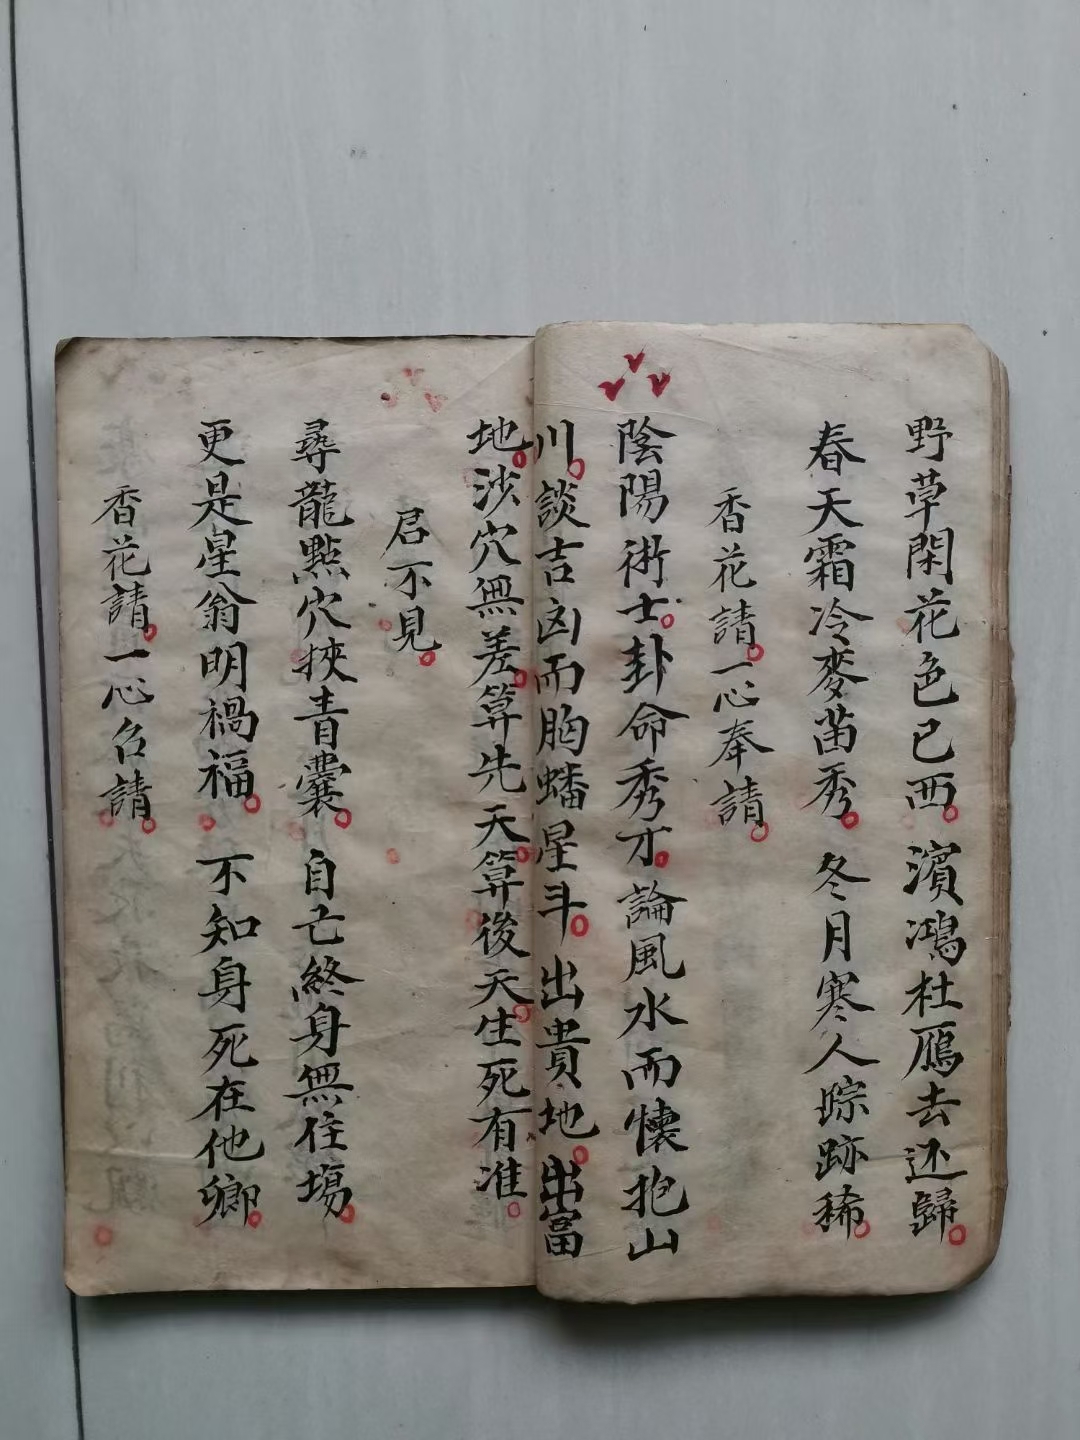 野草閑花色已西。濱鴻杜鴈去还歸。
春天霜冷麥苗秀。冬月寒人踪跡稀。
香花請。一心奉請。
陰陽術士。卦命秀才。論風水而懷抱山
川。談吉凶而胸蟠星斗。出貴地。出富
地。沙穴無差。算先天。算後天。生死有准。
君不見。
尋龍點穴挾青囊。自亡終身無住塲。
更是星翁明禍福。不知身死在他卿。
香花請。一心召請。